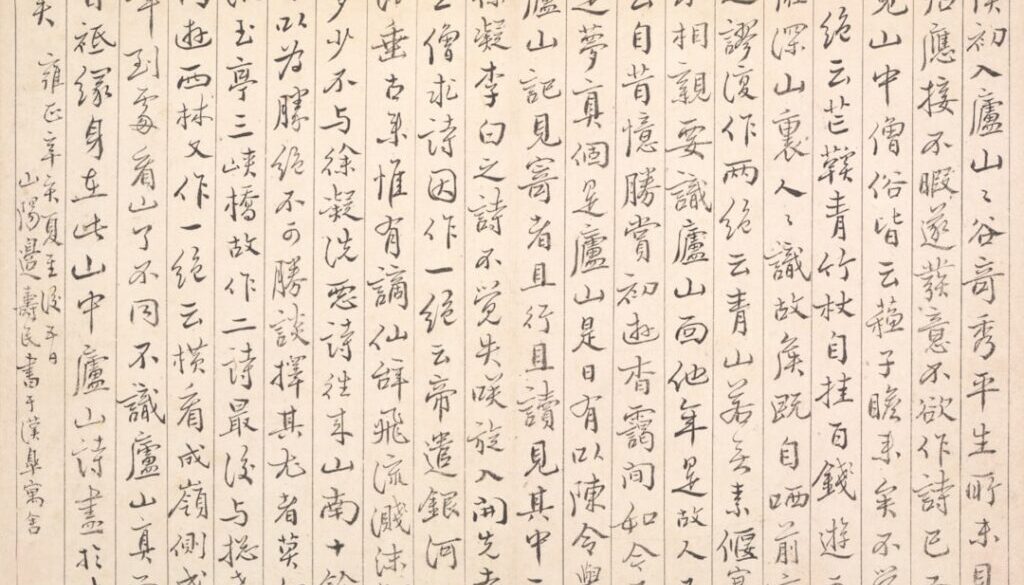 僕初入廬山〻谷奇秀平生所未見
應接不暇遂發意不欲作詩已
見山中僧俗皆云蘓子瞻来矣不覺
絶云芒鞵青竹杖自挂百錢遊
深山裏人〻識故矦既自哂前
之謬復作兩絶云青山若無素偃蹇
不相親要識廬山面他年是故人
云自昔憶勝賞初遊杳靄間如今
是夢真個是廬山是日有以陳令舉
廬山記見寄者且行且讀見其中
徐凝李白之詩不覺失咲旋入開先寺
主僧求詩因作一絶云帝遣銀河
派垂古来惟有謫仙辭飛流濺沫
多少不与徐凝洗惡詩往来山南十餘
日以為勝絶不可勝談擇其尤者莫如
漱玉亭三峽橋故作二詩最後与摠
同遊西林又作一絶云横看成嶺側成
峯到處看山了不同不識廬山真面
目祇緣身在此山中廬山詩盡於
矣 雍正辛亥夏至後五日
山陽邊壽民書于漢皋寓舍